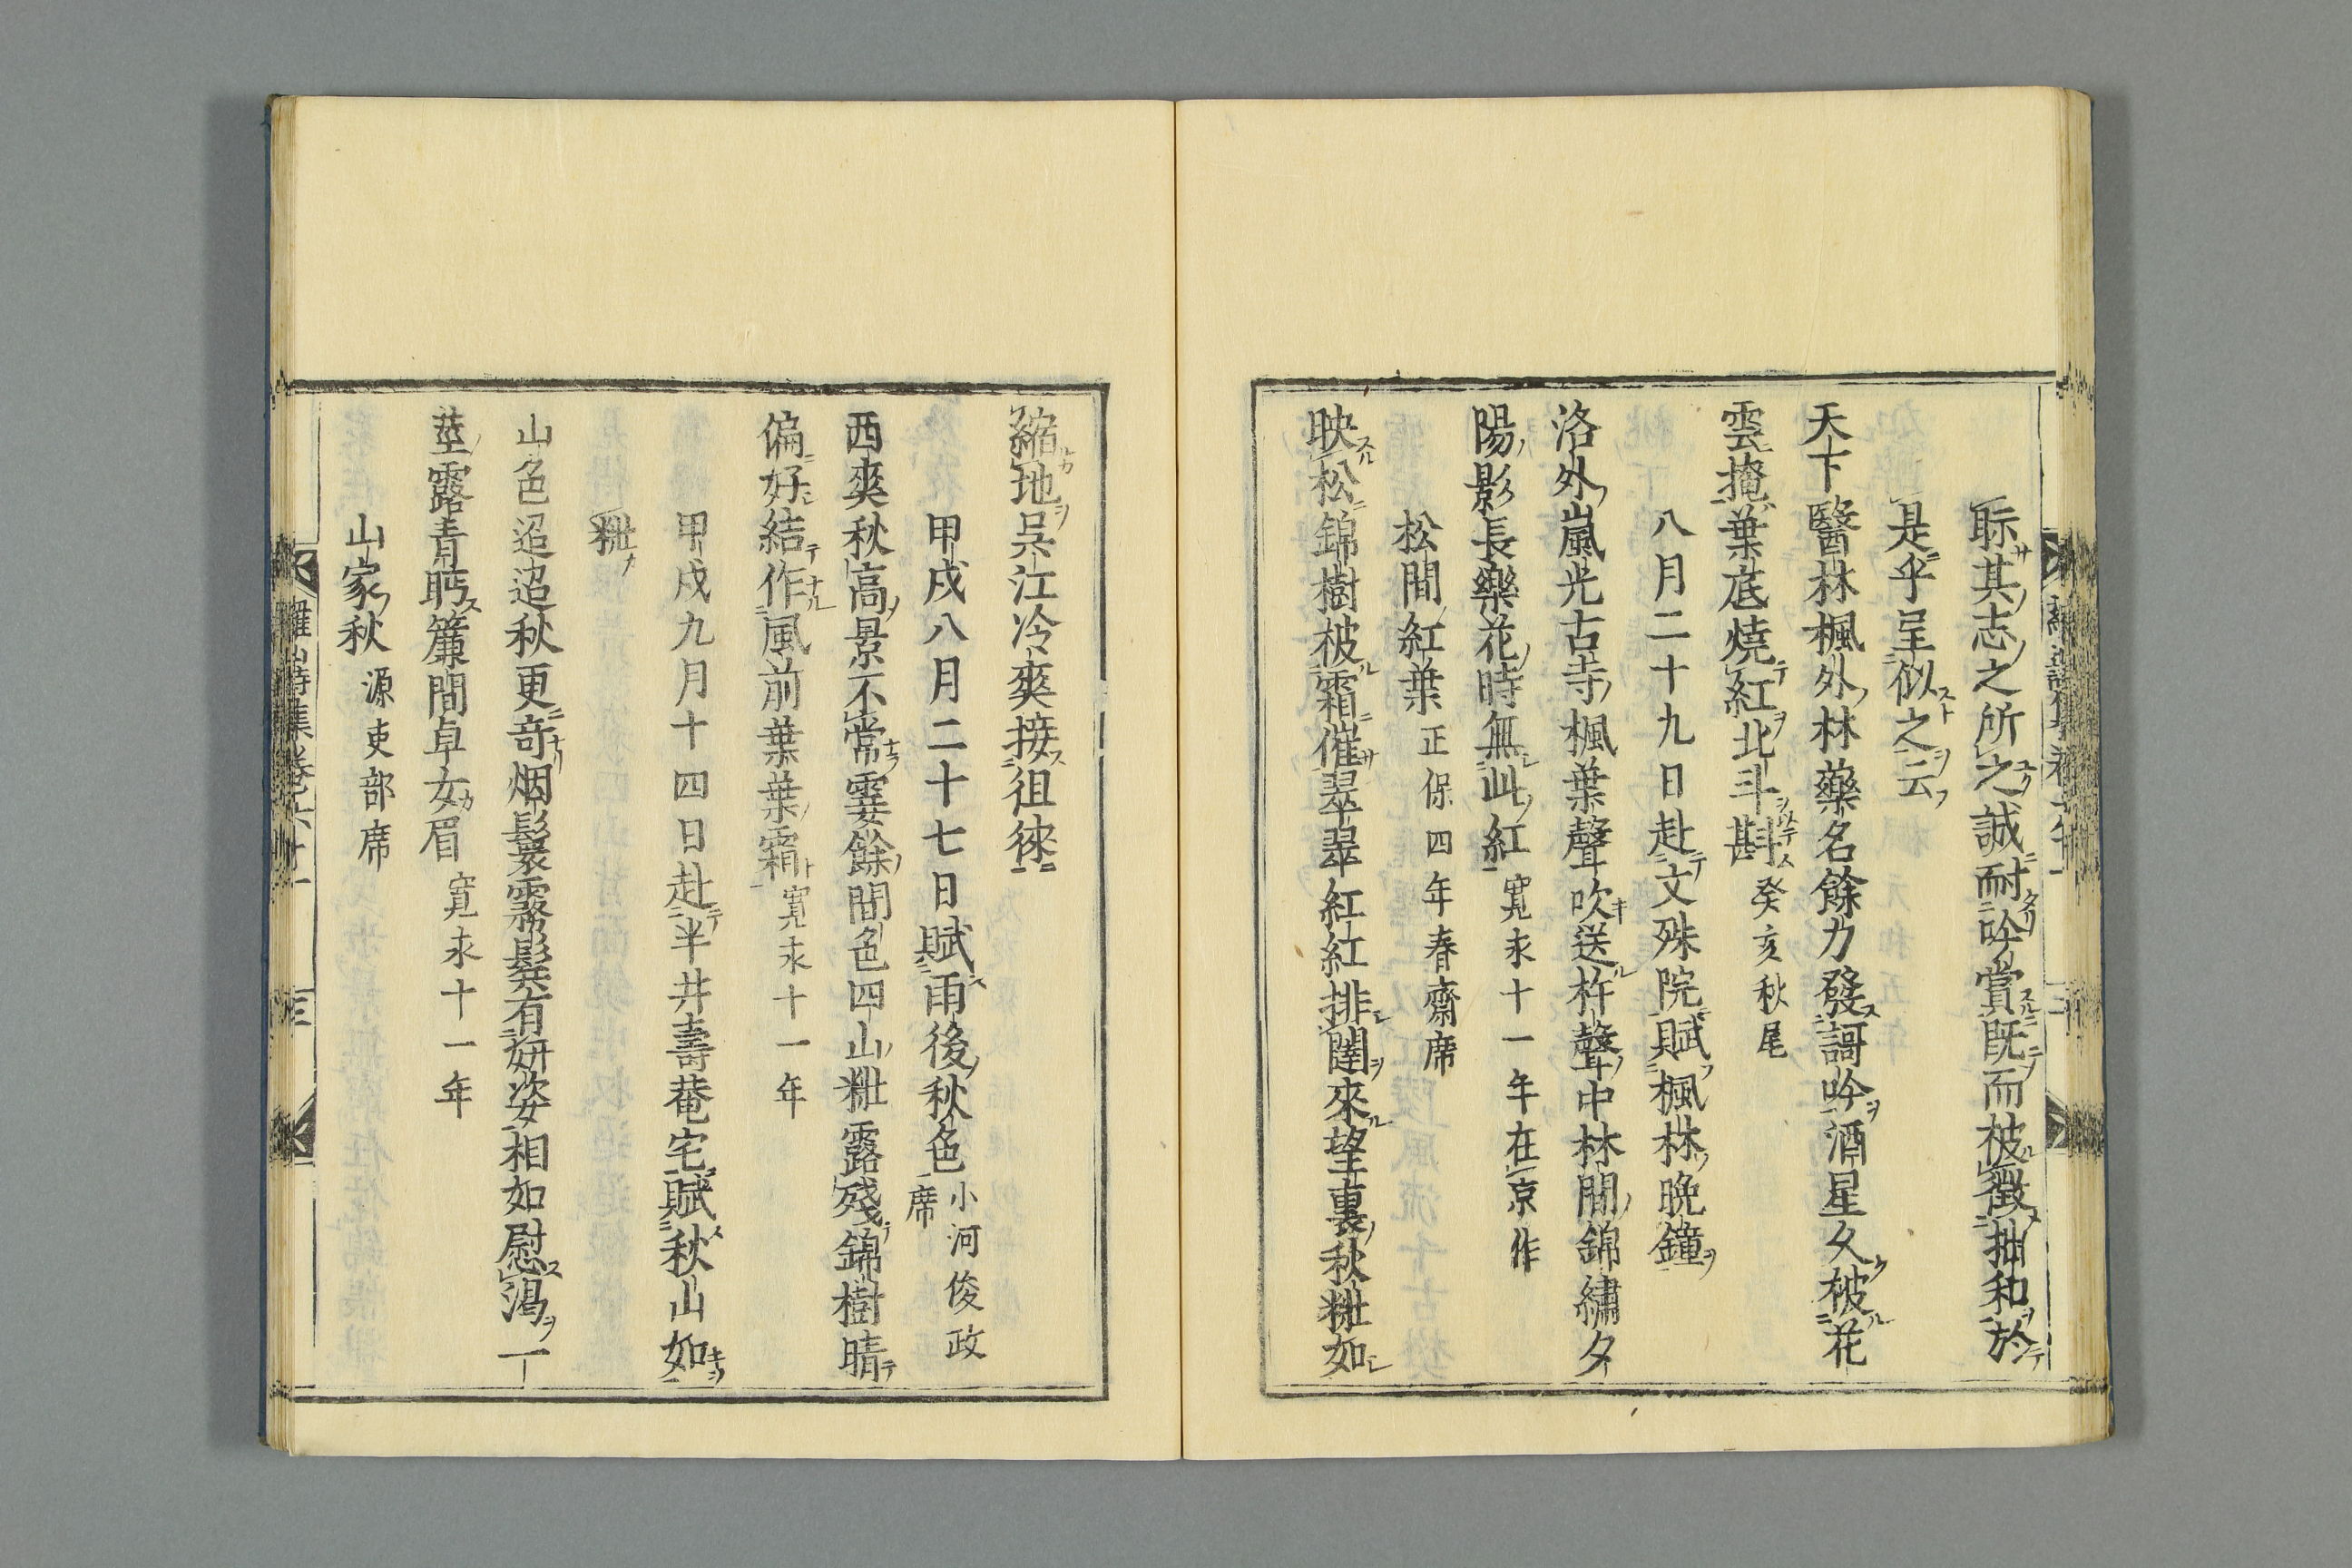 聊其志之所之誠耐吟賞既而被徵拙和於
是乎呈似之云
天下醫林楓外林藥名餘力發謌吟酒星久被花
雲掩葉底燒紅北斗斟 癸亥秋尾
八月二十九日赴文殊院賦楓林晚鐘
洛外嵐光古寺楓葉聲吹送杵聲中林間錦繡夕
陽影長樂花時無此紅 寬永十一年在京作
松間紅葉 正保四年春齋席
映松錦樹被霜催翠翠紅紅排闥來望裏秋粧如
縮地吳江冷爽接徂徠
甲戌八月二十七日賦雨後秋色 小河俊政席
西爽秋高景不常霎餘間色四山粧露殘錦樹晴
偏好結作風前葉葉霜 寬永十一年
甲戌九月十四日赴半井壽菴宅賦秋山如
粧
山色迢迢秋更奇烟鬟霧鬢有妍姿相如慰渴一
莖露青眄簾間卓女眉 寬永十一年
山家秋 源吏部席
羅山詩集卷六十一 三